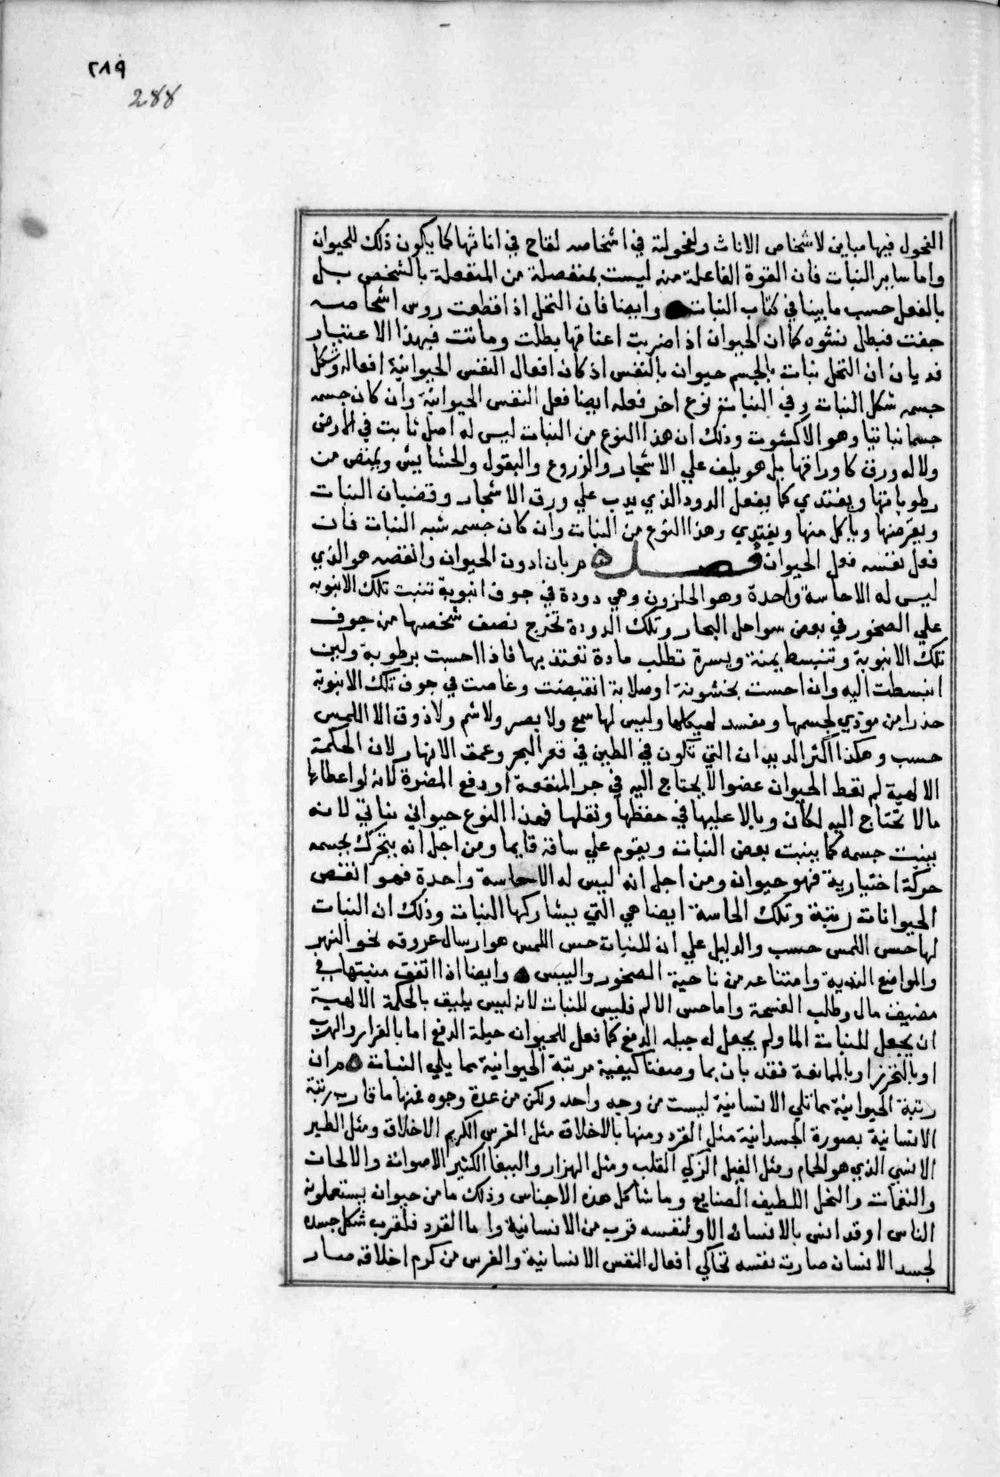 ٢٨٩
288
الفحول فيها مباين لاشخاص الاناث ولفحولته في اشخاصه لقاح في اناثها كما يكون ذلك للحيوان
واما ساير النبات فان القوة الفاعلة منه ليست بمنفصلة من المنفعلة بالشخص بل
بالفعل حسب ما بينا في كتاب النبات وايضا فان النخل اذا قطعت روس اشخاصه
جفت فبطل نشوه كما ان الحيوان اذا ضربت اعناقها بطلت وماتت فبهذا الاعتبار
قد بان ان النخل نبات بالجسم حيوان بالنفس اذ كان افعال النفس الحيوانية افعاله وشكل
جسمه شكل النبات وفي النبات نوع اخر فعله ايضا فعل النفس الحيوانية وان كان جسمه
جسما نباتيا وهو الاكشوث وذلك ان هذا النوع من النبات ليس له اصل ثابت في الارض
ولا له ورق كاوراقها بل هو يلتف علي الاشجار والزروع والبقول والحشايش ويمتص من
رطوباتها ويغتدي كما يفعل الدود الذي يدب علي ورق الاشجار وقضبان النبات
ويقرضها وياكل منها ويغتدي وهذا النوع من النبات وان كان جسمه شبه النبات فان
فعل نفسه فعل الحيوان فصل بان ادون الحيوان وانقصه هو الذي
ليس له الا حاسة واحدة وهو الحلزون وهي دودة في جوف انبوبة تنبت تلك الانبوبه
علي الصخور في بعض سواحل البحار وتلك الدودة تخرج نصف شخصها من جوف
تلك الانبوبة وتنبسط يمنة ويسرة تطلب مادة تغتذ بها فاذا احست برطوبة ولين
انبسطت اليه وان احست بخشونة او صلابة انقبضت وغاصت في جوف تلك الانبوبة
حذرا من موذي لجسمها ومفسد لهيكلها وليس لها سمع ولا بصر ولا شم ولا ذوق الا اللمس
حسب وهكذا اكثر الديدان التي تكون في الطين في قعر البحر وعمق الانهار لان الحكمة
الالهية لم تعط الحيوان عضوا لا يحتاج اليه في جر المنفعة او دفع المضرة لانه لو اعطاها
مالا تحتاج اليه لكان وبالا عليها في حفظها ونقلها فهذا النوع حيواني نباتي لانه
ينبت جسمه كما ينبت بعض النبات ويقوم علي ساقه قايما ومن اجل انه يتحرك بجسمه
حركة اختيارية فهو حيوان ومن اجل انه ليس له الا حاسة واحدة فهو انقص
الحيوانات رتبة وتلك الحاسة ايضا هي التي يشاركها النبات وذلك ان النبات
لها حس اللمس حسب والدليل علي ان للنبات حس اللمس هو ارسال عروقه نحو النهر
والمواضع الندية وامتناعه من ناحية الصخور واليبس وايضا اذا اتفق منبتها في
مضيق مال وطلب الفسحة واما حس الالم فليس للنبات لانه ليس يليق بالحكمة الالهية
ان يجعل للنبات الما ولم يجعل له حيله الدفع كما فعل للحيوان حيلة الدفع اما بالفرار والهرب
او بالتحرز او بالممانعة فقد بان بما وصفنا كيفية مرتبة الحيوانية مما يلي النبات ان
رتبة الحيوانية مما تلي الانسانية ليست من وجه واحد ولكن من عدة وجوه فمنها ما قارب رتبة
الانسانية بصورة الجسدانية مثل القرد ومنها بالاخلاق مثل الفرس الكريم الاخلاق ومثل الطير
الانسي الذي هو الحمام ومثل الفيل الزكي القلب ومثل الهزار والببغا الكثير الاصوات والالحان
والنغمات والنحل اللطيف الصنايع وما شاكل هذه الاجناس وذلك ما من حيوان يستعملونه
الناس او قد انس بالانسان الا ولنفسه قرب من الانسانية واما القرد فلقرب شكل جسده
لجسد الانسان صارت نفسه تحاكي افعال النفس الانسانية والفرس من كرم اخلاقه صار